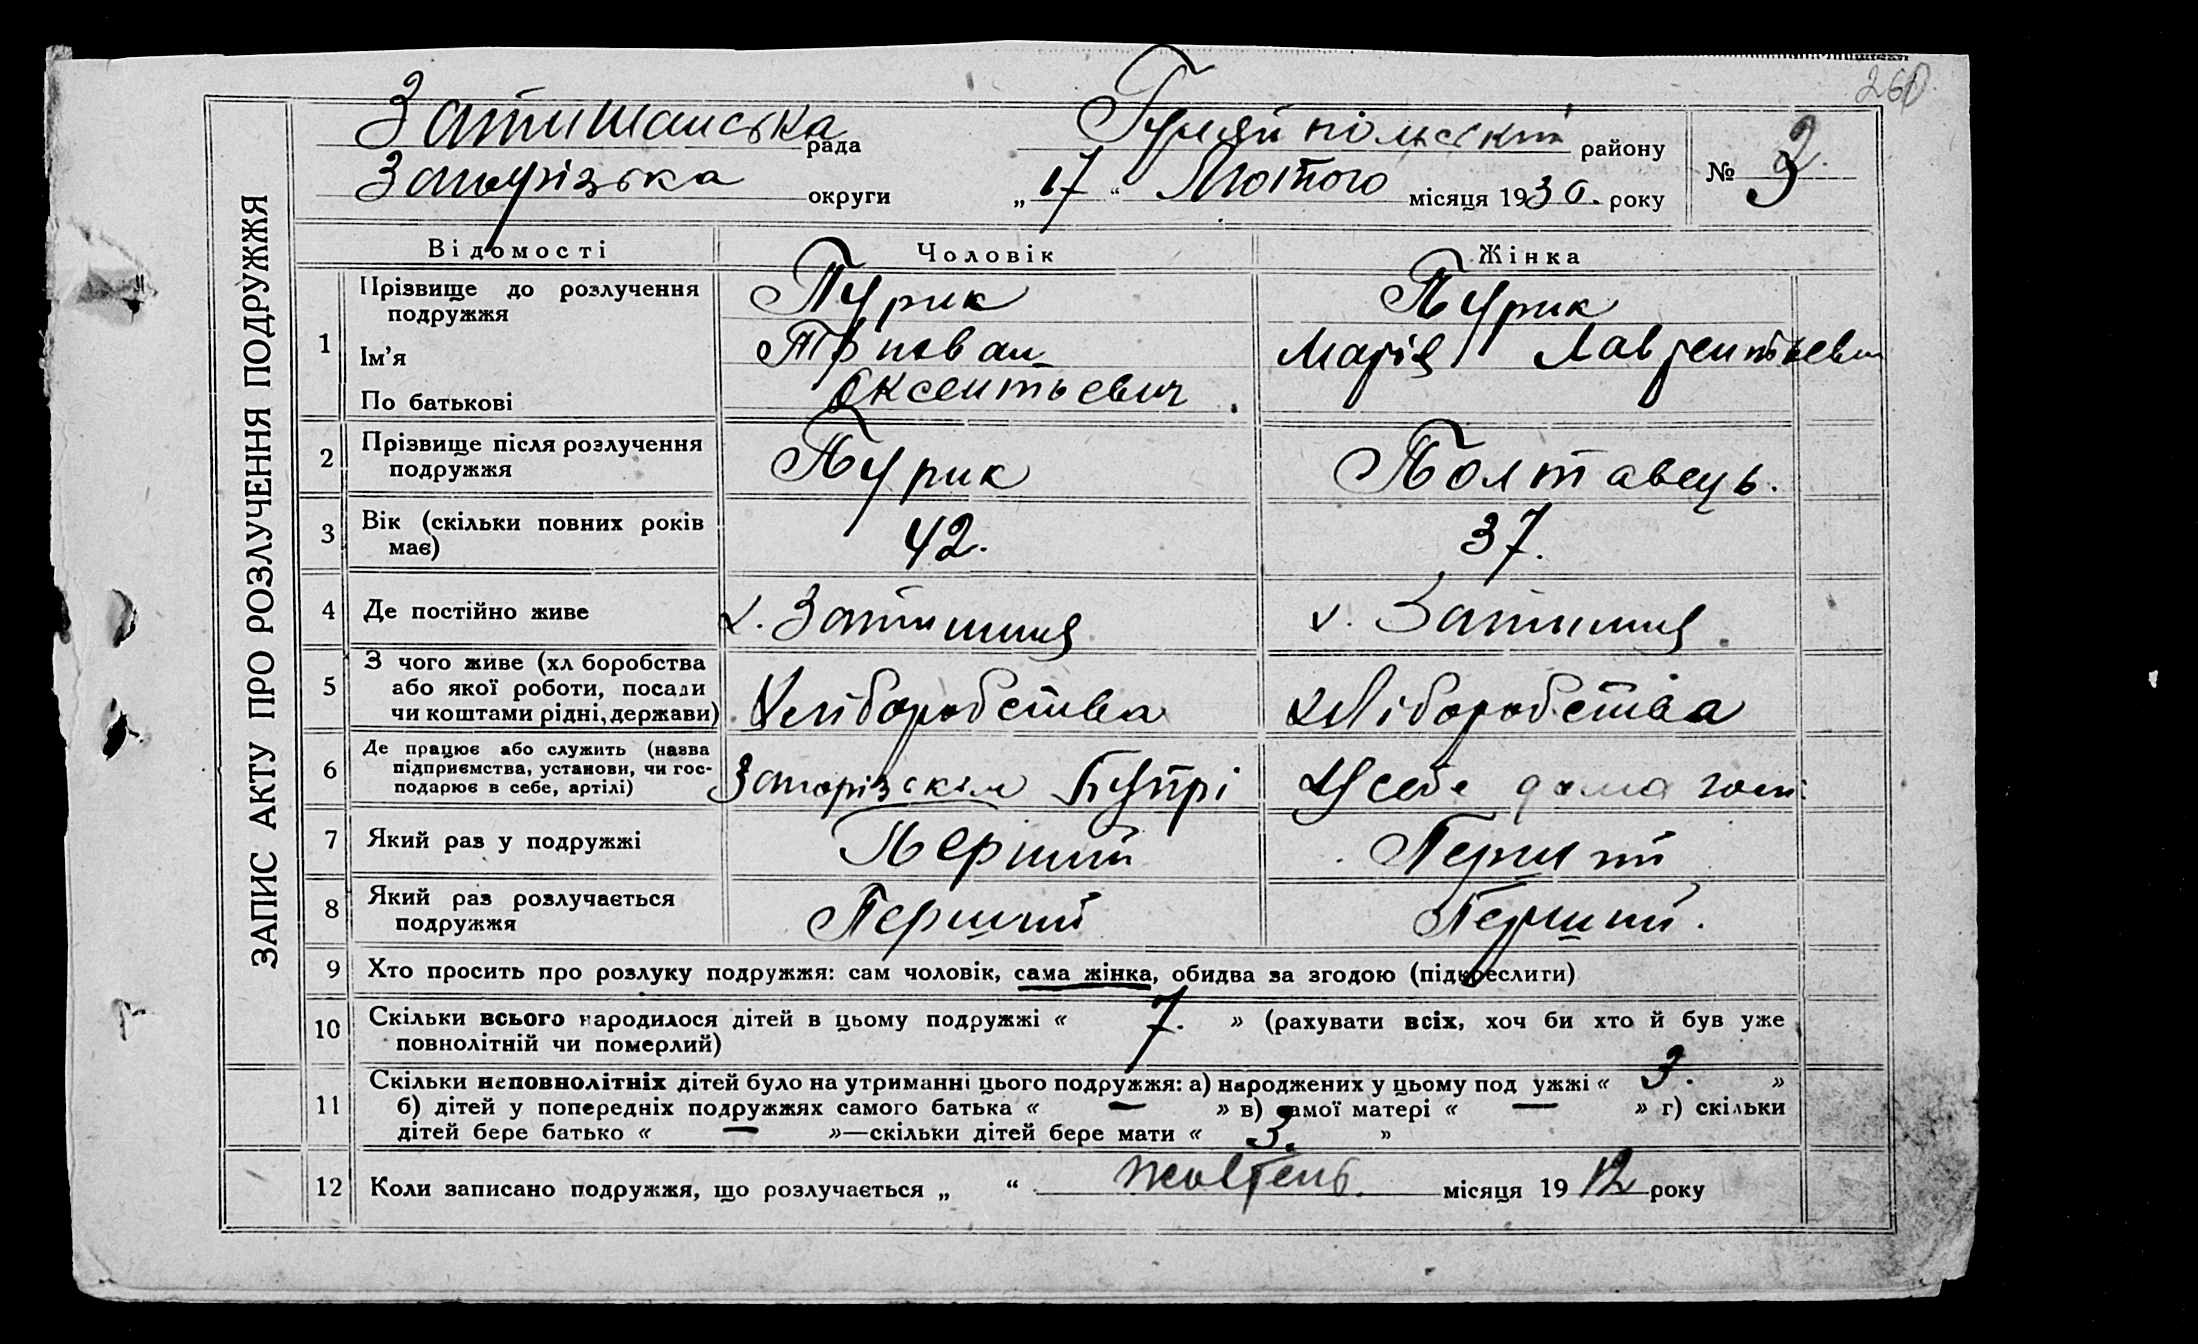 260
Затишанська рада Гуляйпільський району
№ 3
Запорізька округи „17“ Лютого місяця 1930. року
ЗАПИС АКТУ ПРО РОЗЛУЧЕННЯ ПОДРУЖЖЯ
Відомості Чоловік Жінка
1 Прізвище до розлучення Пурик Пурик
подружжя
Ім'я Трихван Марія Лаврентьевна
По батькові Оксентьевич
2 Прізвище після розлучення Пурик Полтавець.
подружжя
3 Вік (скільки повних років 42. 37.
має)
4 Де постійно живе х. Затишшя х. Затишшя
5 З чого живе (хл боробства
або якої роботи, посади
чи коштами рідні, держави) Хліборобства хліборобства
6 Де працює або служить (назва
підприємства, установи, чи гос- Запорізськім Бупрі У себе дома
подарює в себе, артілі)
7 Який раз у подружжі Перший Перший
8 Який раз розлучається Перший Перший.
подружжя
9 Хто просить про розлуку подружжя: сам чоловік, сама жінка, обидва за згодою (підкреслити)
10 Скільки всього народилося дітей в цьому подружжі « 7. » (рахувати всіх, хоч би хто й був уже
повнолітній чи померлий)
11 Скільки неповнолітніх дітей було на утриманні цього подружжя: а) народжених у цьому под ужжі « 3. »
б) дітей у попередніх подружжях самого батька « — » в) самої матері « — » г) скільки
дітей бере батько « — »—скільки дітей бере мати « 3. »
12 Коли записано подружжя, що розлучається „ “ жовтень місяця 1912 року